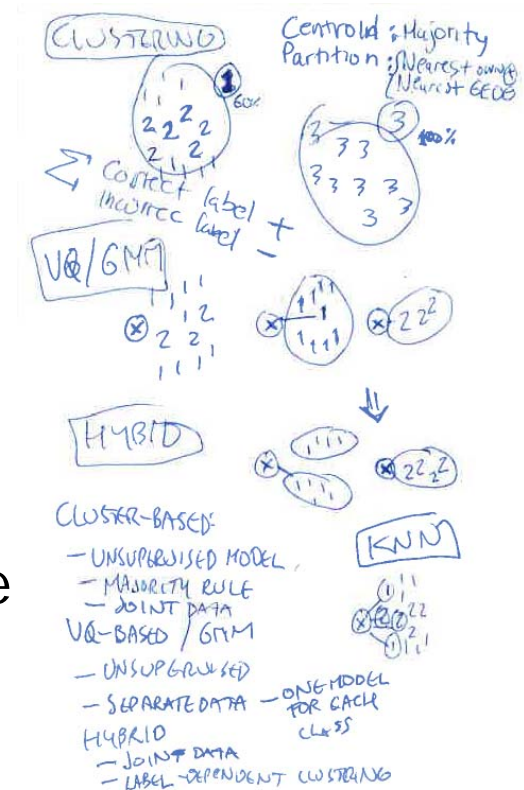 CLUSTERING
Centroid : Majority
Partition : Nearest owner
Nearest
1
60%
1 1 1
2 2 2 2
2 2
1 1 1 1
3
100%
3
3 3
3 3 3 3
3 3
Σ Correct label +
incorrec label -
VQ/GMM
1 1 1 1
1 2
X 2 2
1 1 1 1
X 1 1 1 1
1
1 1 1 1
X 2 2 2
⇓
HYBID
1 1 1 1
X
1 1 1 1
X 2 2 2 2
CLUSTER-BASED:
- UNSUPERVISED MODEL
- MAJORITY RULE
- JOINT DATA
KNN
1 1 1
X 2 2 2 2
1 1 1
VQ-BASED / GMM
- UNSUPERVISED
- SEPARATE DATA - ONE MODEL
FOR EACH
CLASS
HYBRID
- JOINT DATA
- LABEL-DEPENDENT CLUSTERING
e